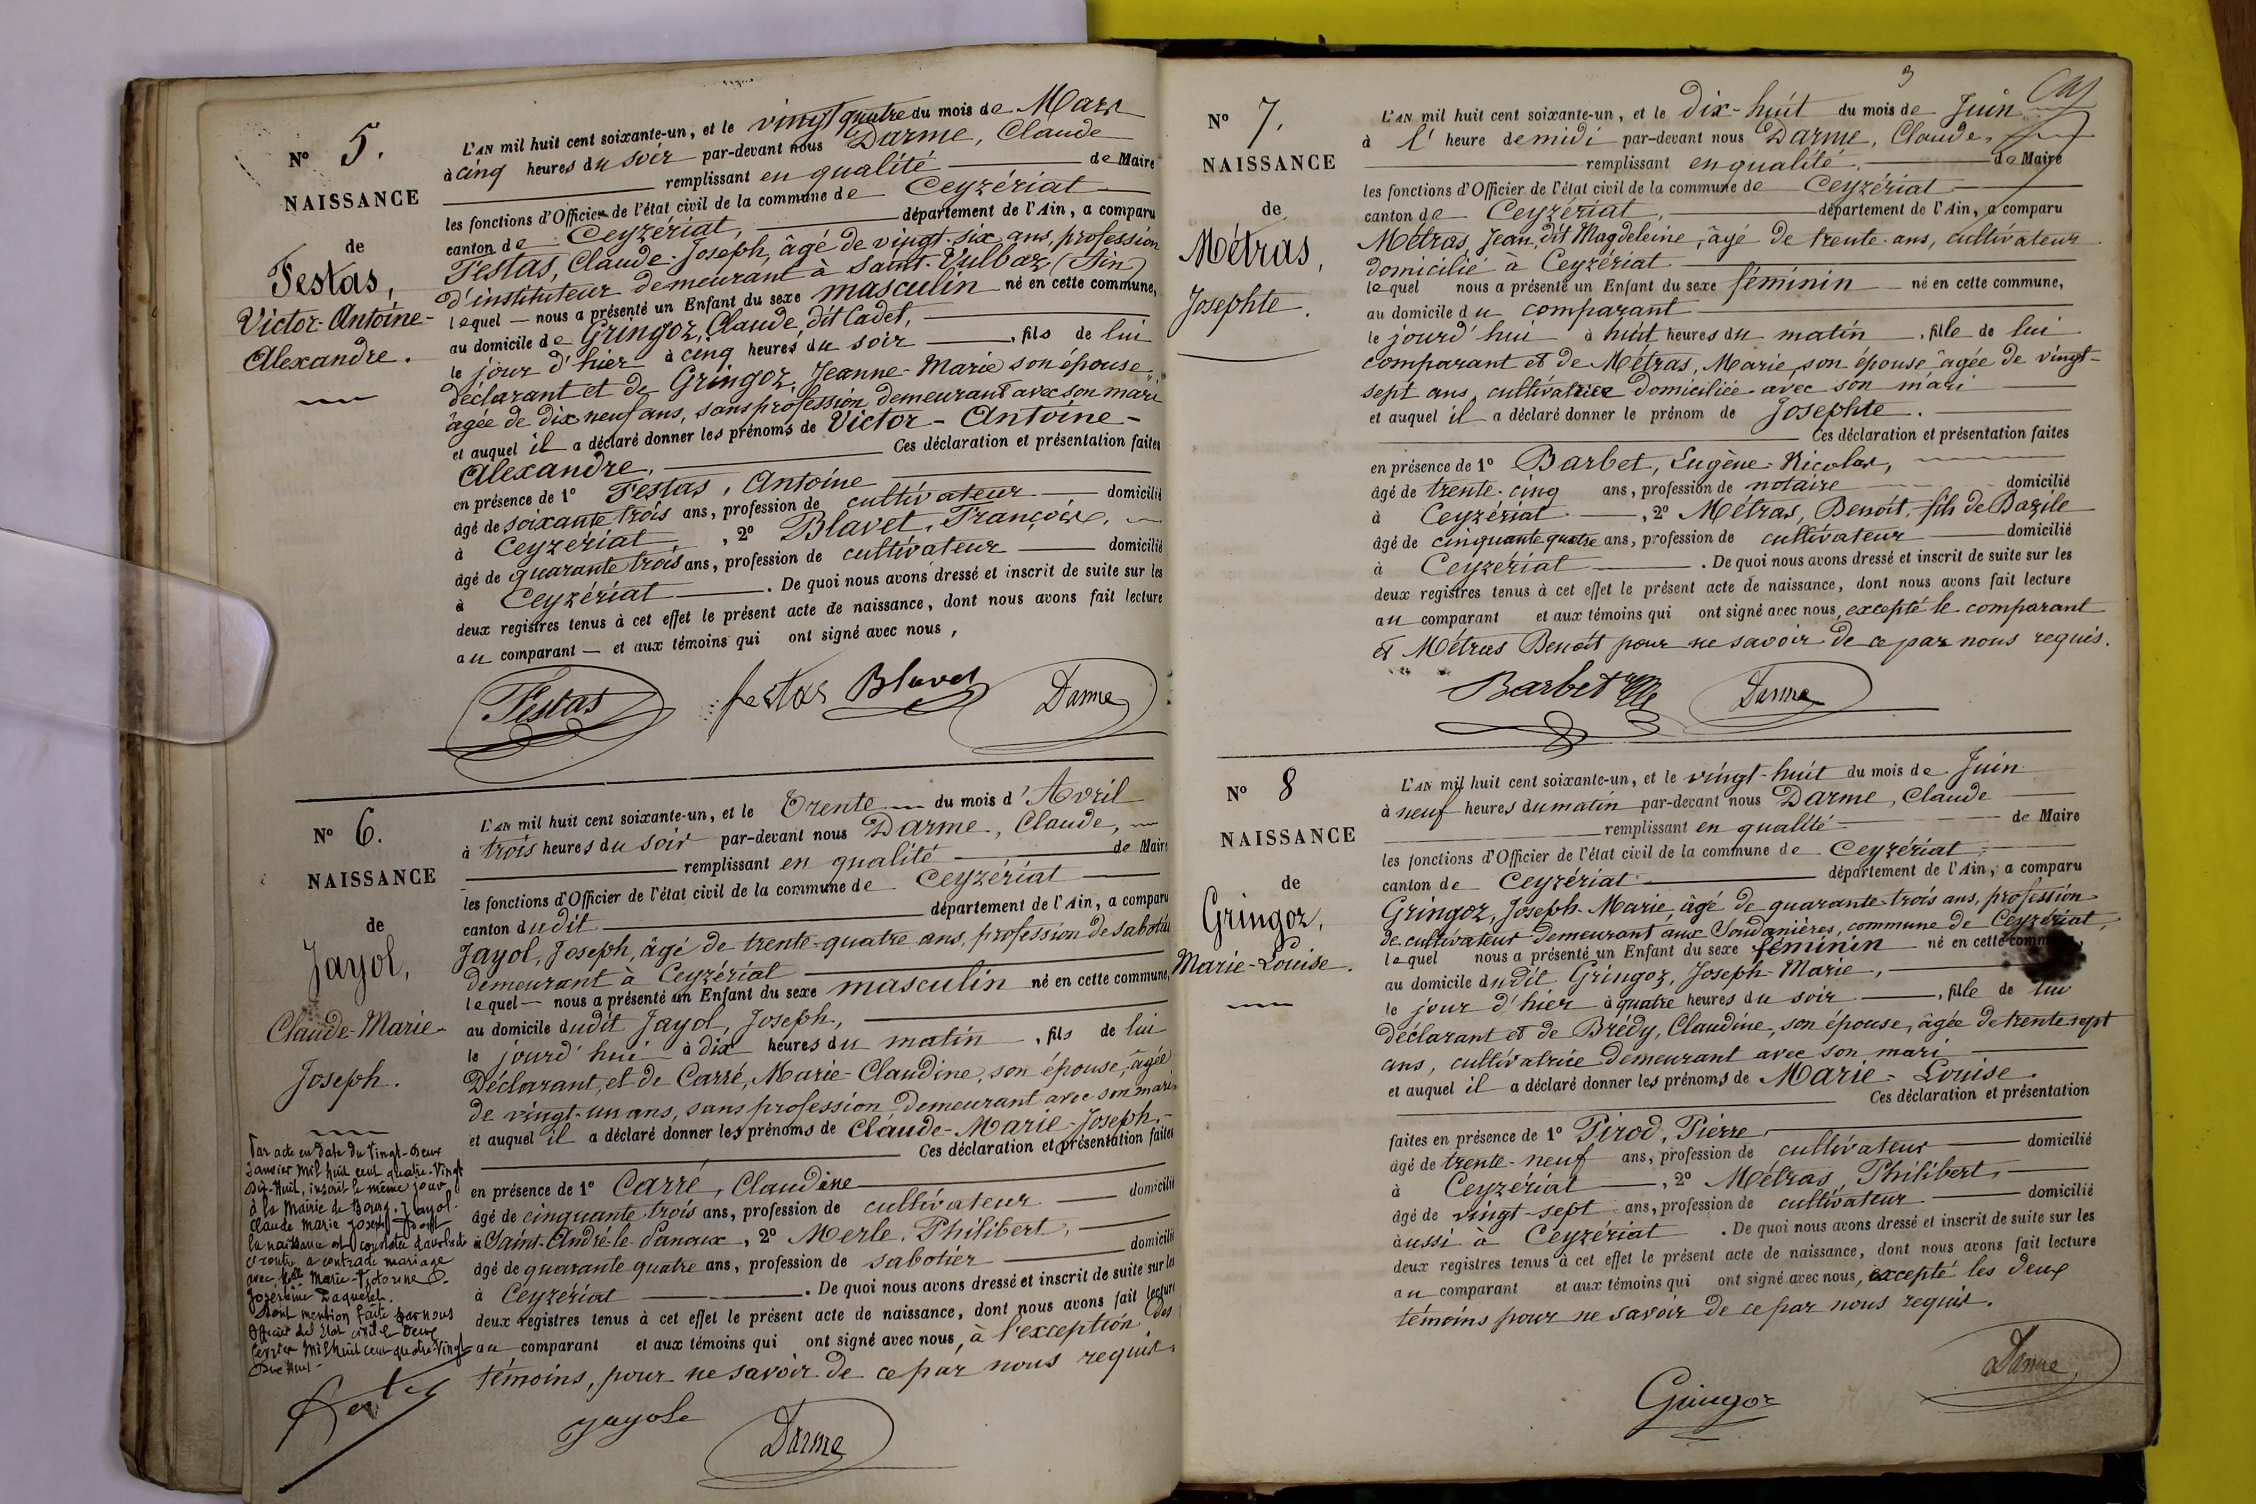 N° 5.
NAISSANCE
de
Festas,
Victor-Antoine-
Alexandre.
L'AN mil huit cent soixante-un, et le vingt quatre du mois de Mars
à cinq heures du soir par-devant nous Darme, Claude
remplissant en qualité de Maire
les fonctions d'Officier de l'état civil de la commune de Ceyzériat
canton de Ceyzériat, département de l'Ain, a comparu
Festas, Claude-Joseph, âgé de vingt-six ans, profession
d'instituteur demeurant à Saint-Vulbaz (Ain)
lequel — nous a présenté un Enfant du sexe masculin né en cette commune,
au domicile de Gringoz, Claude, dit Cadet,
le jour d'hier à cinq heures du soir, fils de lui
déclarant et de Gringoz, Jeanne-Marie son épouse,
âgée de dix neuf ans, sans profession demeurant avec son mari
et auquel il a déclaré donner les prénoms de Victor-Antoine-
Alexandre. Ces déclaration et présentation faites
en présence de 1° Festas, Antoine
âgé de soixante trois ans, profession de cultivateur domicilié
à Ceyzériat, 2° Blavet, François,
âgé de quarante trois ans, profession de cultivateur domicilié
à Ceyzériat. De quoi nous avons dressé et inscrit de suite sur les
deux registres tenus à cet effet le présent acte de naissance, dont nous avons fait lecture
au comparant — et aux témoins qui ont signé avec nous,
Festas festas Blavet Darme
N° 6.
NAISSANCE
de
Jayol,
Claude-Marie-
Joseph.
L'AN mil huit cent soixante-un, et le Trente du mois d'Avril
à trois heures du soir par-devant nous Darme, Claude,
remplissant en qualité de Maire
les fonctions d'Officier de l'état civil de la commune de Ceyzériat
canton dudit département de l'Ain, a comparu
Jayol, Joseph, âgé de trente-quatre ans, profession de sabotier
demeurant à Ceyzériat
lequel — nous a présenté un Enfant du sexe masculin né en cette commune,
au domicile dudit Jayol, Joseph,
le jourd'hui à dix heures du matin, fils de lui
Déclarant, et de Carré, Marie-Claudine, son épouse, âgée
de vingt-un ans, sans profession demeurant avec son mari
et auquel il a déclaré donner les prénoms de Claude-Marie-Joseph.
Ces déclaration et présentation faites
en présence de 1° Carré, Claudine
âgé de cinquante trois ans, profession de cultivateur domicilié
à Saint-André-le-Panoux, 2° Merle, Philibert,
âgé de quarante quatre ans, profession de sabotier domicilié
à Ceyzériat. De quoi nous avons dressé et inscrit de suite sur les
deux registres tenus à cet effet le présent acte de naissance, dont nous avons fait lecture
au comparant et aux témoins qui ont signé avec nous, à l'exception des
témoins, pour ne savoir de ce par nous requis.
Jayol Darme
Par acte en date du Vingt-Deux
Janvier Mil huit cent quatre-Vingt
Dix-Huit, inscrit le même jour
à la Mairie de Bourg, Jayol
Claude Marie Joseph Dont
la naissance est constatée dans l'acte
ci contre a contracté mariage
avec Melle Marie-Victorine
Joséphine Paquelet.
Dont mention faite par nous
Officier de l'Etat civil le Deux
février Mil huit cent quatre-Vingt
Dix Huit
N° 7.
NAISSANCE
de
Métras,
Josephte.
3
L'AN mil huit cent soixante-un, et le dix-huit du mois de Juin
à l' heure de midi par-devant nous Darme, Claude,
remplissant en qualité de Maire
les fonctions d'Officier de l'état civil de la commune de Ceyzériat
canton de Ceyzériat, département de l'Ain, a comparu
Métras, Jean, dit Magdeleine, âgé de trente ans, cultivateur
domicilié à Ceyzériat
lequel nous a présenté un Enfant du sexe féminin né en cette commune,
au domicile du comparant
le jourd'hui à huit heures du matin, fille de lui
comparant et de Métras, Marie son épouse âgée de vingt-
sept ans cultivatrice domiciliée avec son mari
et auquel il a déclaré donner le prénom de Josephte.
Ces déclaration et présentation faites
en présence de 1° Barbet, Eugène-Nicolas,
âgé de trente-cinq ans, profession de notaire domicilié
à Ceyzériat, 2° Métras, Benoît, fils de Bazile
âgé de cinquante quatre ans, profession de cultivateur domicilié
à Ceyzériat. De quoi nous avons dressé et inscrit de suite sur les
deux registres tenus à cet effet le présent acte de naissance, dont nous avons fait lecture
au comparant et aux témoins qui ont signé avec nous, excepté le comparant
et Métras Benoît pour ne savoir de ce par nous requis.
Barbet Darme
N° 8
NAISSANCE
de
Gringoz,
Marie-Louise.
L'AN mil huit cent soixante-un, et le vingt-huit du mois de Juin
à neuf heures du matin par-devant nous Darme, Claude
remplissant en qualité de Maire
les fonctions d'Officier de l'état civil de la commune de Ceyzériat,
canton de Ceyzériat département de l'Ain, a comparu
Gringoz, Joseph-Marie, âgé de quarante-trois ans, profession
de cultivateur demeurant aux Soudanières, commune de Ceyzériat,
lequel nous a présenté un Enfant du sexe féminin né en cette comm
au domicile dudit Gringoz, Joseph-Marie,
le jour d'hier à quatre heures du soir, fille de lui
déclarant et de Brédy, Claudine, son épouse, âgée de trente-sept
ans, cultivatrice demeurant avec son mari
et auquel il a déclaré donner les prénoms de Marie-Louise.
Ces déclaration et présentation
faites en présence de 1° Pirod, Pierre,
âgé de trente-neuf ans, profession de cultivateur domicilié
à Ceyzériat, 2° Métras, Philibert,
âgé de vingt-sept ans, profession de cultivateur domicilié
aussi à Ceyzériat. De quoi nous avons dressé et inscrit de suite sur les
deux registres tenus à cet effet le présent acte de naissance, dont nous avons fait lecture
au comparant et aux témoins qui ont signé avec nous, excepté les deux
témoins pour ne savoir de ce par nous requis.
Gringoz Darme